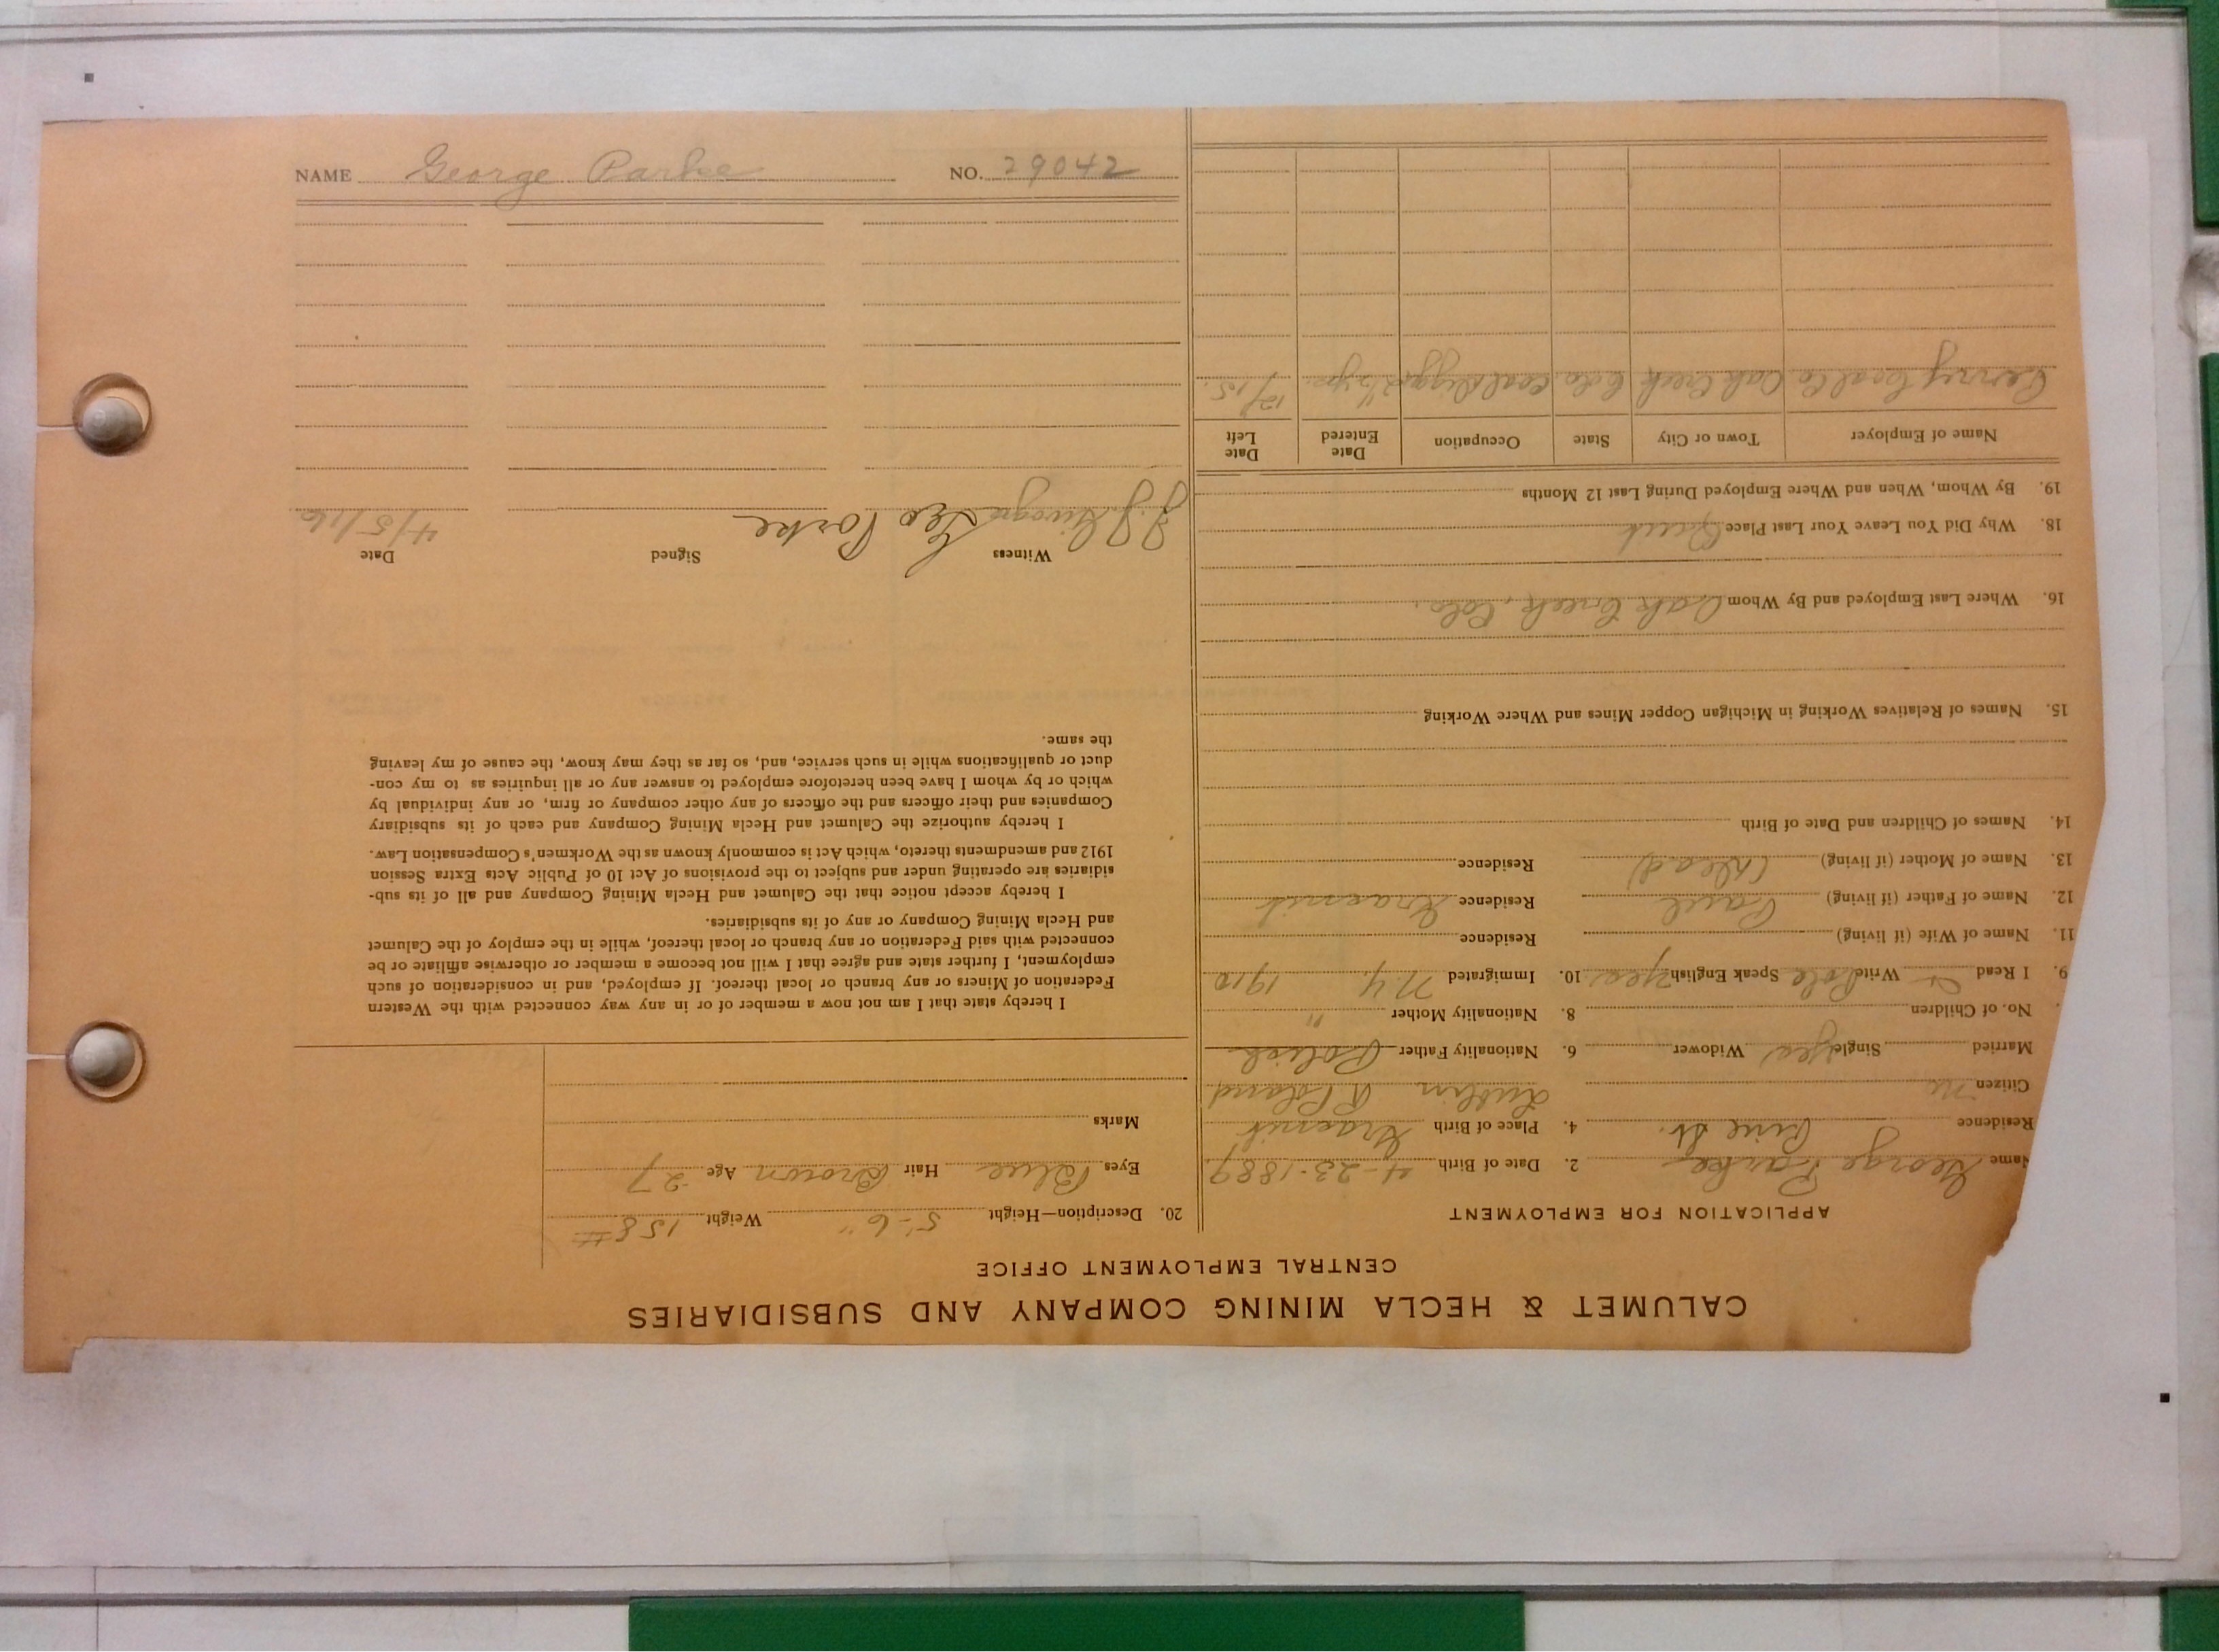 CALUMET & HECLA MINING COMPANY AND SUBSIDIARIES
CENTRAL EMPLOYMENT OFFICE
APPLICATION FOR EMPLOYMENT
Name George Parke 2. Date of Birth 4-23-1889
Residence Pine St. 4. Place of Birth
Citizen no Lublin R Poland
Married Single yes Widower 6. Nationality Father Polish
No. of Children 8. Nationality Mother "
9. I Read Write Pole Speak English yes 10. Immigrated N.Y. 1910
11. Name of Wife (if living) Residence
12. Name of Father (if living) Paul Residence
13. Name of Mother (if living) (dead) Residence
14. Names of Children and Date of Birth
15. Names of Relatives Working in Michigan Copper Mines and Where Working
16. Where Last Employed and By Whom Oak Creek, Colo.
18. Why Did You Leave Your Last Place Quit
19. By Whom, When and Where Employed During Last 12 Months
Name of Employer Town or City State Occupation Date Entered Date Left
Coal Co. Oak Creek Colo. Coal digger 2 1/2 yrs. 12/15.
20. Description—Height 5-6" Weight 158 #
Eyes Blue Hair Brown Age 27
Marks
I hereby state that I am not now a member of or in any way connected with the Western
Federation of Miners or any branch or local thereof. If employed, and in consideration of such
employment, I further state and agree that I will not become a member or otherwise affiliate or be
connected with said Federation or any branch or local thereof, while in the employ of the Calumet
and Hecla Mining Company or any of its subsidiaries.
I hereby accept notice that the Calumet and Hecla Mining Company and all of its sub-
sidiaries are operating under and subject to the provisions of Act 10 of Public Acts Extra Session
1912 and amendments thereto, which Act is commonly known as the Workmen's Compensation Law.
I hereby authorize the Calumet and Hecla Mining Company and each of its subsidiary
Companies and their officers and the officers of any other company or firm, or any individual by
which or by whom I have been heretofore employed to answer any or all inquiries as to my con-
duct or qualifications while in such service, and, so far as they may know, the cause of my leaving
the same.
Witness Signed Date
Geo Parke 4/5/16
NAME George Parke NO. 29042